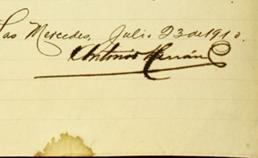 Las Mercedes, Julio 23 de 191
Antonio